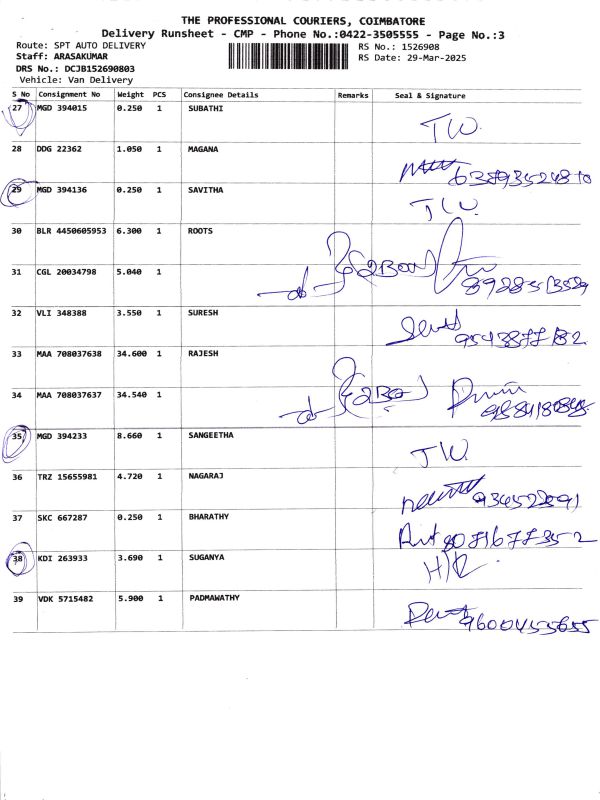 THE PROFESSIONAL COURIERS, COIMBATORE
Delivery Runsheet - CMP - Phone No.:0422-3505555 - Page No.:3
Route: SPT AUTO DELIVERY
RS No.: 1526908
Staff: ARASAKUMAR
RS Date: 29-Mar-2025
DRS No.: DCJB152690803
Vehicle: Van Delivery
S No Consignment No Weight PCS Consignee Details Remarks Seal & Signature
27 MGD 394015 0.250 1 SUBATHI
28 DDG 22362 1.050 1 MAGANA
29 MGD 394136 0.250 1 SAVITHA
30 BLR 4450605953 6.300 1 ROOTS
31 CGL 20034798 5.040 1
32 VLI 348388 3.550 1 SURESH
33 MAA 708037638 34.600 1 RAJESH
34 MAA 708037637 34.540 1
35 MGD 394233 8.660 1 SANGEETHA
36 TRZ 15655981 4.720 1 NAGARAJ
37 SKC 667287 0.250 1 BHARATHY 8071677352
38 KDI 263933 3.690 1 SUGANYA
39 VDK 5715482 5.900 1 PADMAWATHY 9600455655